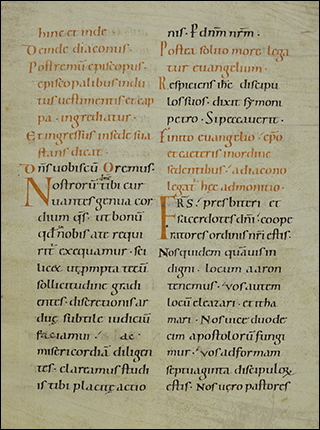 hinc et inde
Deinde diaconus.
Postremū episcopus.
episcopalibus indu
tus uestimentis et cap
pa · ingrediatur.
Et ingressus in sede sua
stans dicat.
Dn̄s uobiscū Oremus.
Nostrorū tibi cur
uantes genua cor
dium qs̄ · ut bonū
qd̄ nobis a te requi
rit exequamur · sci
licet ut prompta tecū
sollicitudine gradi
entes · discretionis ar
duę subtile iudiciū
faciamus · ac
misericordiā diligen
tes · claramus studi
is tibi placitę actio
nis · P dnm̄ nrm̄.
Postea solito more lega
tur euangelium.
Respiciens ih̄c discipu
los suos · dixit symoni
petro · Si peccauerit.
Finito euangelio · ep̄o
et cęteris in ordine
sedentibus · a diacono
legat̄ hec admonitio.
FRS̄ · presbiteri et
sacerdotes dn̄i · coope
ratores ordinis nr̄i estis.
Nos quidem quāuis in
digni · locum aaron
tenemus · uos autem
locū eleazari · et itha
mari · Nos uice duode
cim apostolorū fungi
mur · uos ad formam
septuaginta discipulorū
estis · Nos uero pastores